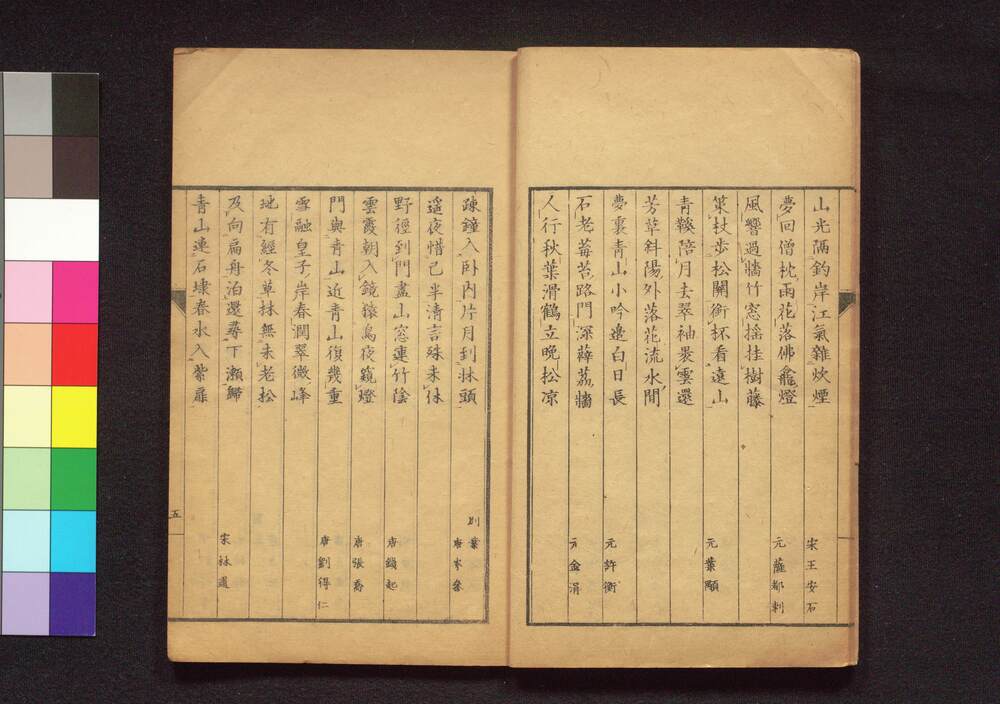 山光隔釣岸江氣雜炊煙 宋王安石
夢回僧枕雨花落佛龕燈 元薩都剌
風響過牆竹窓搖挂樹藤
策杖步松關銜杯看遠山 元葉顒
青鞵陪月去翠袖裛雲還
芳草斜陽外落花流水間
夢裏青山小吟邊白日長 元許衡
石老莓苔路門深薜荔牆 元金涓
人行秋葉滑鶴立晚松凉
疎鐘入卧内片月到牀頭 別業 唐岑參
遥夜惜已半清言殊未休
野徑到門盡山窓連竹陰 唐錢起
雲霞朝入鏡猿鳥夜窺燈 唐張喬
門與青山近青山復幾重 唐劉得仁
雪融皇子岸春潤翠微峰
地有經冬草林無未老松
及向扁舟泊還尋下瀨歸 宋林逋
青山連石埭春水入紫扉
五